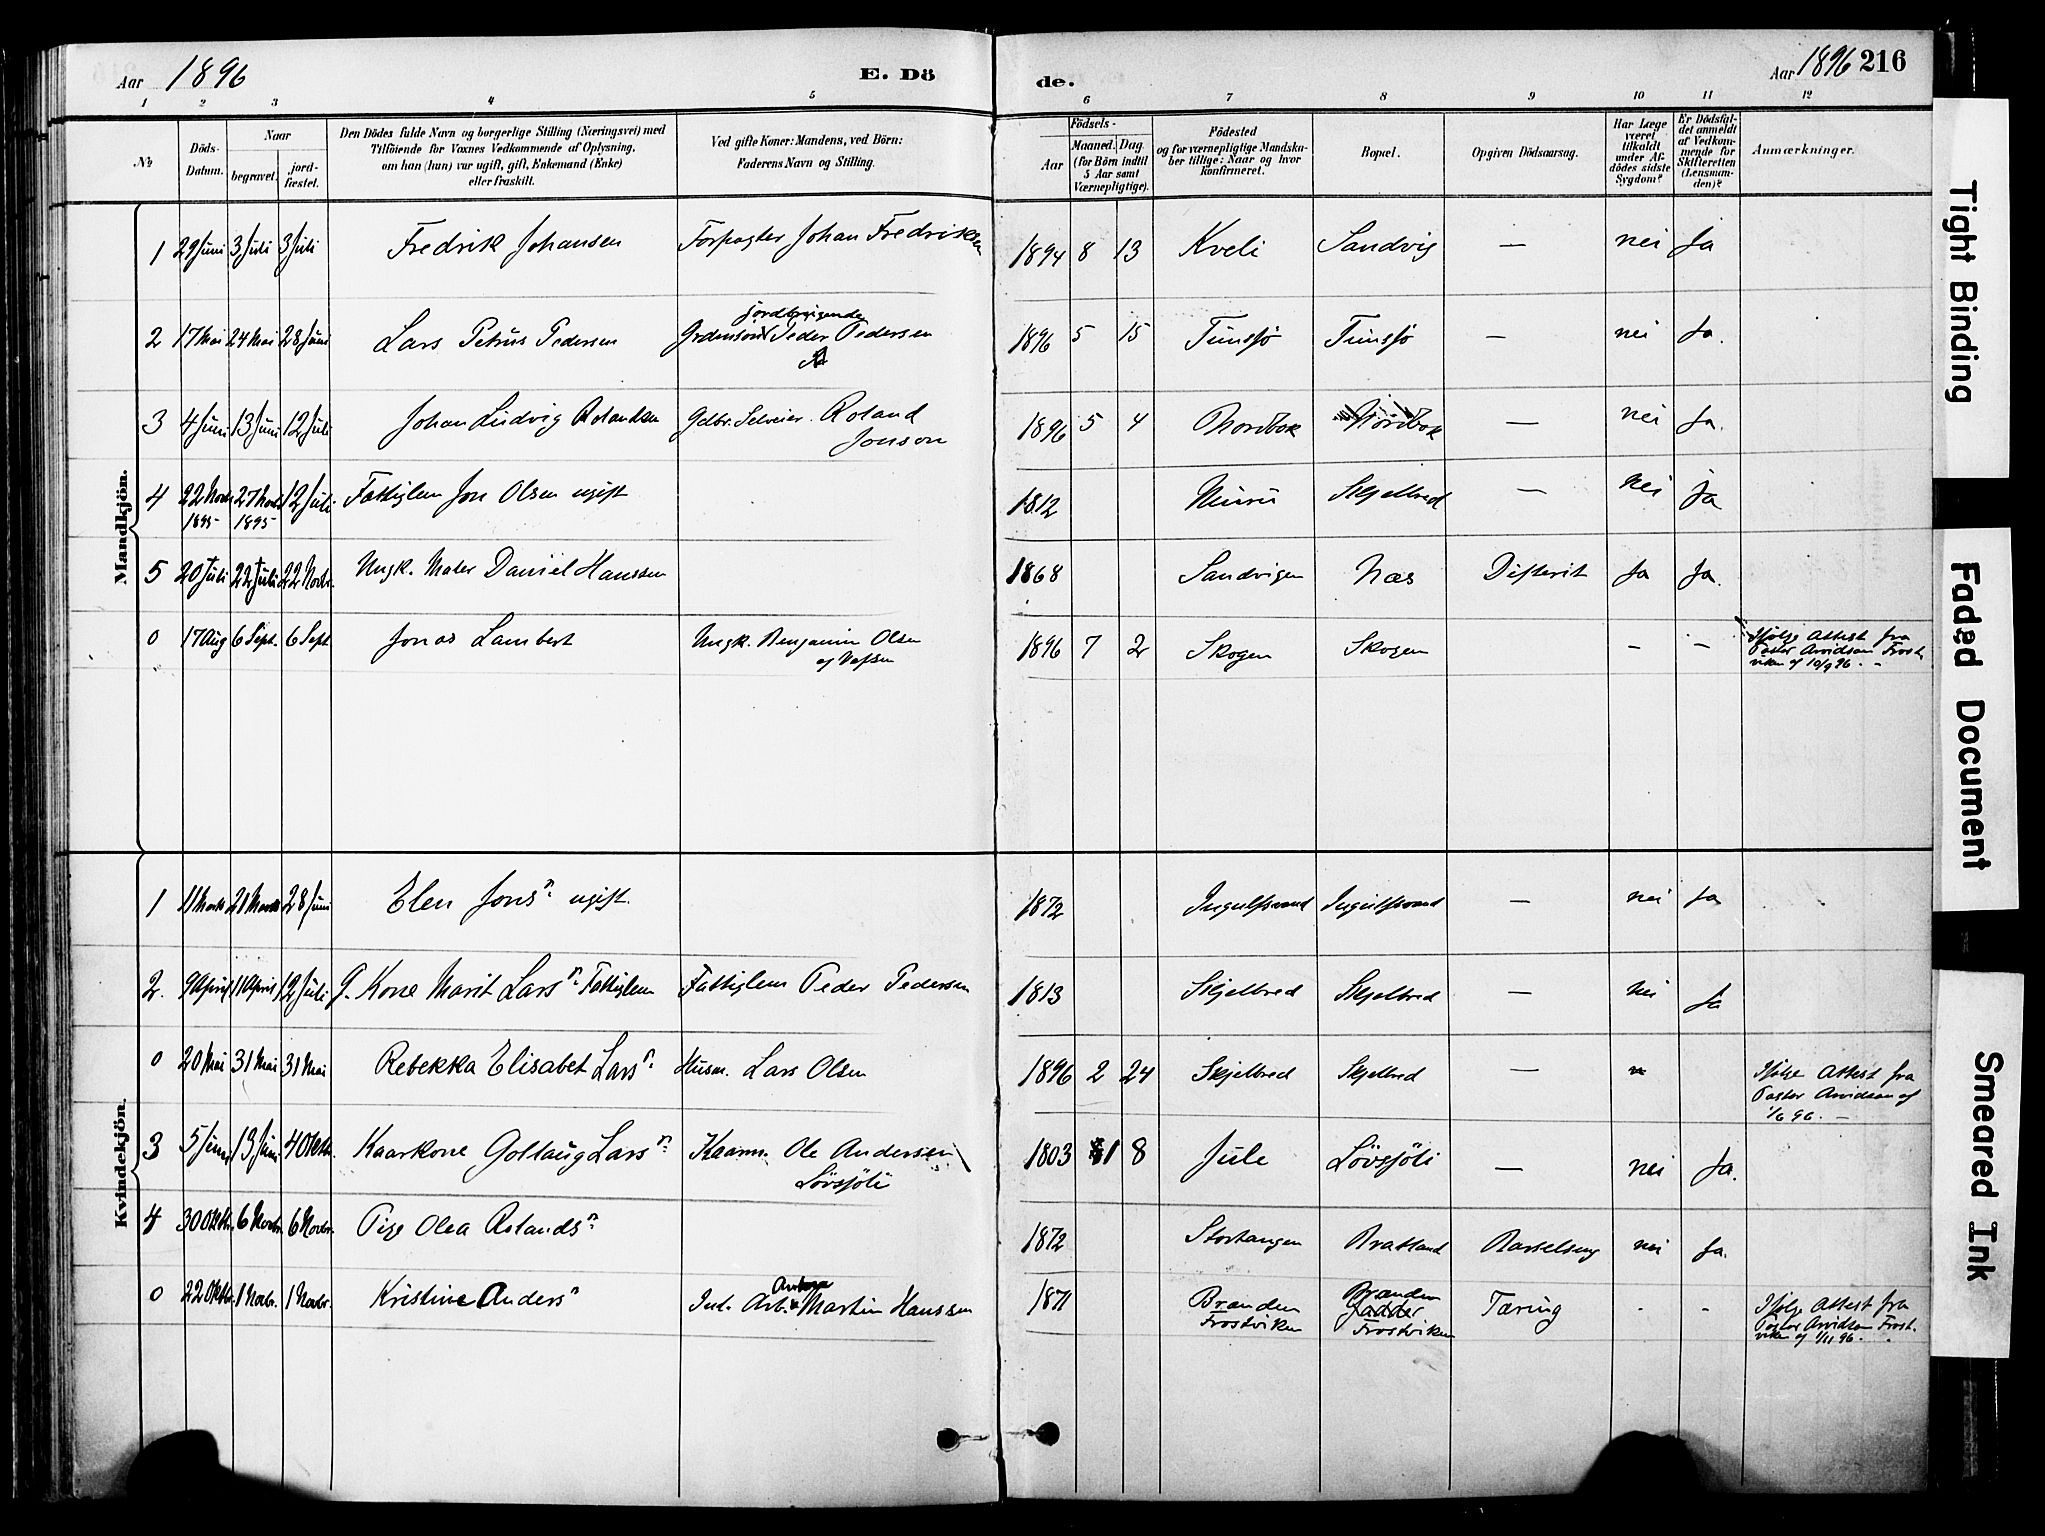 Aar 1896
E. Dö
de.
Aar 1896 216
1 2 3 4 5 6 7 8 9 10 11 12
No
Döds-
Datum.
Naar
begravet.
jord-
fæstet.
Den Dödes fulde Navn og borgerlige Stilling (Næringsvei) med
Tilföiende for Voxnes Vedkommende af Oplysning,
om han (hun) var ugift, gift, Enkemand (Enke)
eller fraskilt.
Ved gifte Koner: Mandens, ved Börn:
Faderens Navn og Stilling.
Födsels-
Aar
Maaned. Dag.
(for Börn indtil
5 Aar samt
Værnepligtige).
Födested
og for værnepligtige Mandska-
ber tillige: Naar og hvor
konfirmeret.
Bopæl.
Opgiven Dödsaarsag.
Har Læge
været
tilkaldt
under Af-
dödes sidste
Sygdom?
Er Dödsfal-
det anmeldt
af Vedkom-
mende for
Skifteretten
(Lensman-
den)?
Anmærkninger.
Mandkjön.
1 29 Juni 3 Juli 3 Juli Fredrik Johansen Forpagter Johan Fredriksen 1894 8 13 Kveli Sandvig — nei Ja
2 17 Mai 24 Mai 28 Juni Lars Petrus Pedersen Peder Pedersen 1896 5 15 Tunsjø Tunsjø — nei Ja.
3 4 Juni 13 Juni 12 Juli Johan Ludvig Rolandsen Gdbr. Selveier. Roland
Jonson 1896 5 4 Nordbok Nordbok — nei Ja.
4 22 Novbr 27 Novbr 12 Juli Fattiglem Jon Olsen ugift 1812 Muru Skjelbred — nei Ja
1895 1895
5 20 Juli 22 Juli 22 Novbr. Ungk. Maler Daniel Hanssen 1868 Sandvigen Næs Difterit Ja Ja.
0 17 Aug 6 Sept. 6 Sept Jonas Lambert Ungk. Benjamin Olsen
af Vefsen 1896 7 2 Skogen Skogen - - Ifølge Attest fra
Pastor Arvidson Frost-
viken af 10/9 96. -
Kvindekjön.
1 11 Marts 21 Marts 28 Juni Elen Jonsn. ugift. 1872 Ingulfsvand Ingulfsvand — nei Ja
2. 9 April 11 April 12 Juli G. Kone Marit Larsn. Fattiglem Fattiglem Peder Pedersen 1813 Skjelbred Skjelbred — nei Ja
0 20 Mai 31 Mai 31 Mai Rebekka Elisabet Larsn. Husm. Lars Olsen 1896 2 24 Skjelbred Skjelbred — Ifølge Attest fra
Pastor Arvidson af
1/6 96. —
3 5 Juni 13 Juni 4 Oktbr. Kaarkone Gollaug Larsn. Kaarm. Ole Andersen
Løvsjöli 1803 1 8 Jule Lövsjöli — nei Ja.
4 30 Oktbr. 6 Novbr. 6 Novbr. Pige Olea Rolandsn. 1872 Stortangen Bratland Barselseng nei Ja.
0 22 Oktbr. 1 Novbr. 1 Novbr. Kristine Andersn Ind. Arb. Martin Hanssen 1871 Branden
Frostviken Branden
Gadder
Frostviken Tæring - - Ifølge Attest fra
Pastor Arvidson Frost-
viken af 1/11 96. -
Tight Binding
Faded Document
Smeared Ink